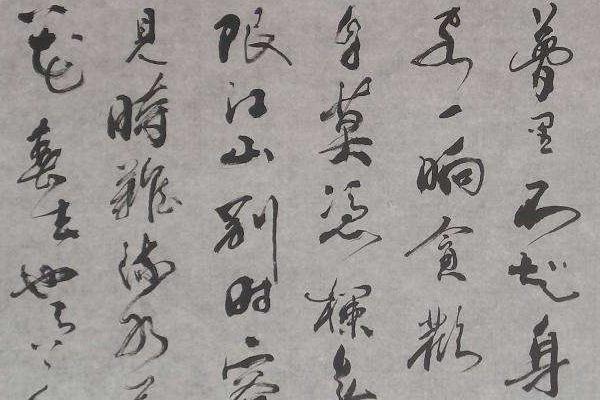 夢里不知身
客一晌貪歡
自莫憑欄無
限江山別时容
見時難流水
花春去也天上